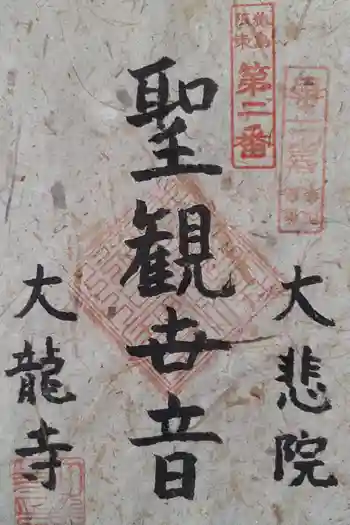 第二番
大悲院
聖観世音
大龍寺